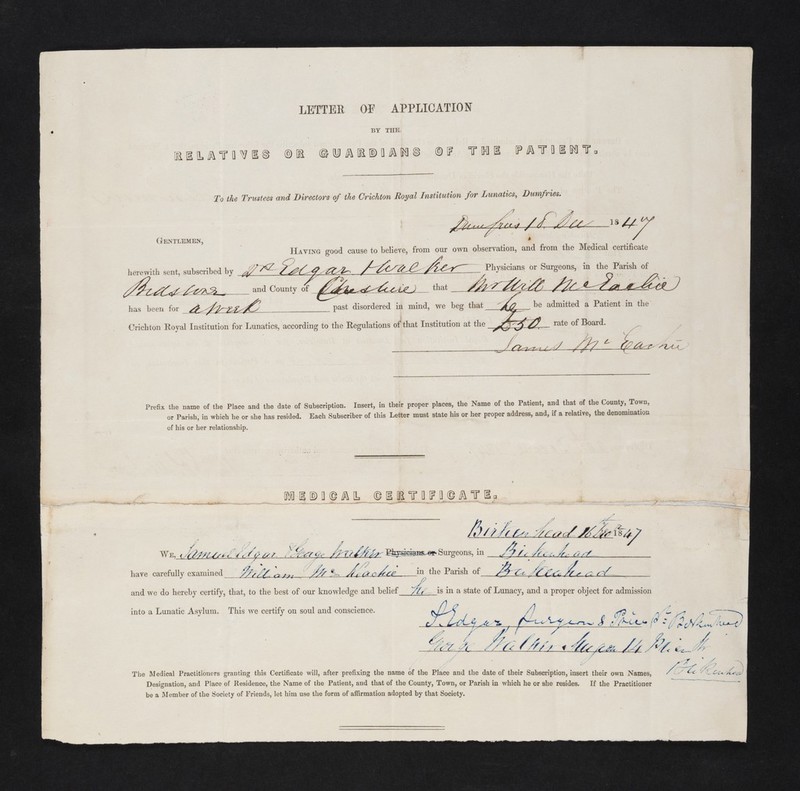 LETTER OF APPLICATION
BY THE
RELATIVES OR GUARDIANS OF THE PATIENT.
To the Trustees and Directors of the Crichton Royal Institution for Lunatics, Dumfries.
Dumfries 18 Dec 1847
GENTLEMEN,
HAVING good cause to believe, from our own observation, and from the Medical certificate
herewith sent, subscribed by Drs Edgar & Walker Physicians or Surgeons, in the Parish of
and County of Cheshire that Mr Will McEachie
has been for a week past disordered in mind, we beg that he be admitted a Patient in the
Crichton Royal Institution for Lunatics, according to the Regulations of that Institution at the £50 rate of Board.
James McEachie
Prefix the name of the Place and the date of Subscription. Insert, in their proper places, the Name of the Patient, and that of the County, Town,
or Parish, in which he or she has resided. Each Subscriber of this Letter must state his or her proper address, and, if a relative, the denomination
of his or her relationship.
MEDICAL CERTIFICATE.
Birkenhead 16 Dec 1847
WE, Samuel Edgar & George Walker Physicians or Surgeons, in Birkenhead
have carefully examined William McKeachie in the Parish of Birkenhead
and we do hereby certify, that, to the best of our knowledge and belief he is in a state of Lunacy, and a proper object for admission
into a Lunatic Asylum. This we certify on soul and conscience.
S. Edgar, Surgeon 8 Price St Birkenhead
George Walker Surgeon
Birkenhead
The Medical Practitioners granting this Certificate will, after prefixing the name of the Place and the date of their Subscription, insert their own Names,
Designation, and Place of Residence, the Name of the Patient, and that of the County, Town, or Parish in which he or she resides. If the Practitioner
be a Member of the Society of Friends, let him use the form of affirmation adopted by that Society.